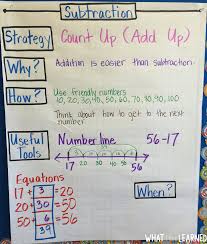 Subtraction
Strategy Count Up (Add Up)
Why? Addition is easier than subtraction
How? Use friendly numbers
10, 20, 30, 40, 50, 60, 70, 80, 90, 100
Think about how to get to the next
number
Useful Tools
Number line 56-17
17 20 50 56
Equations
17 + 3 = 20
20 + 30 = 50
50 + 6 = 56
39
When?
WHAT I HAVE LEARNED